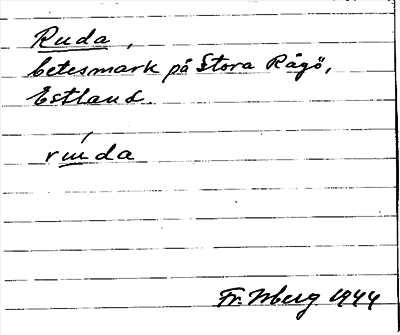 Ruda,
betesmark på Stora Rågö,
Estland.
rúda
Fr. Wberg 1944